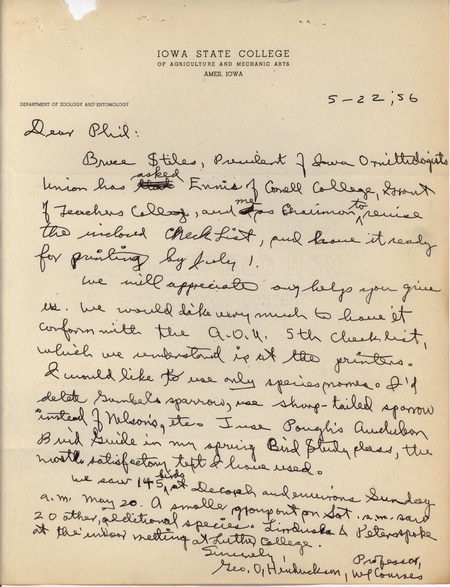 IOWA STATE COLLEGE
OF AGRICULTURE AND MECHANIC ARTS
AMES, IOWA
DEPARTMENT OF ZOOLOGY AND ENTOMOLOGY
5-22, '56
Dear Phil:
Bruce Stiles, President of Iowa Ornithologists
Union has asked Ennis of Cornell College, Grant
of Teachers College, and me as Chairman to revise
the inclosed Check List, and have it ready
for printing by July 1.
We will appreciate any helps you give
us. We would like very much to have it
conform with the A.O.U. 5th Check list,
which we understand is at the printers.
I would like to use only species names. I'd
delete Gambels sparrow, use sharp-tailed sparrow
instead of Nelson's, etc. I use Pough's Audubon
Bird Guide in my spring Bird Study class, the
most satisfactory text I have used.
We saw 145 birds at Decorah and environs Sunday
a.m. May 20. A smaller group out on Sat. a.m. saw
20 other, additional species. Linduska & Peterson spoke
at the indoor meeting at Luther College.
Sincerely,
Geo. O. Hendrickson, Professor,
WL Courses